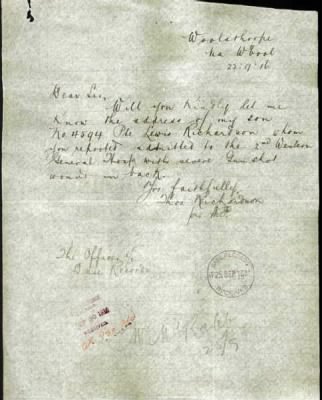 Woolsthorpe
Via W'Bool
22.9.16
Dear Sir,
Will you kindly let me
know the address of my son
No 4594 Pte Lewis Richardson whom
you reported admitted to the 2nd Western
General Hosp with severe Gun shot
wounds in back.
Yrs faithfully,
Thos Richardson
The Officer
Base Records
25 SEP 1916